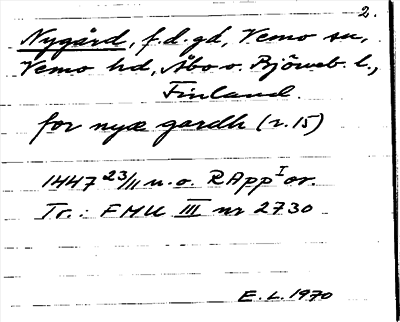 2.
Nygård, f.d. gd, Vemo sn,
Vemo hd, Åbo o. Björneb. l.,
Finland.
for nyæ gardh (r. 15)
1447 23/11 u.o. RAppI or.
Tr.: FMU III nr 2730
E. L. 1970